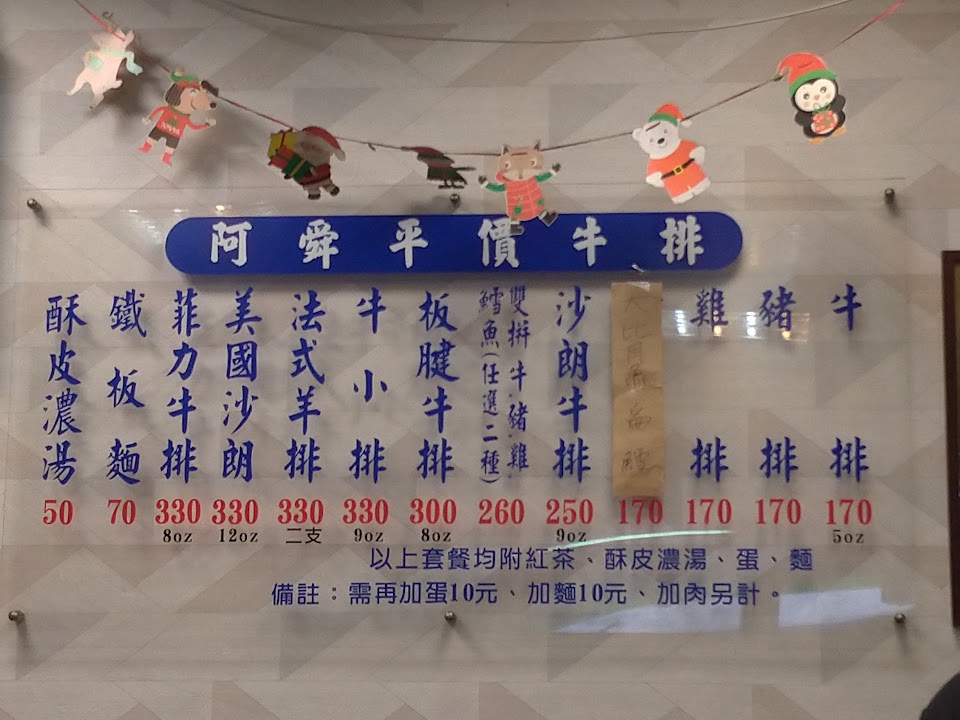 阿舜平價牛排
牛排
170
5oz
豬排
170
雞排
170
170
沙朗牛排
250
9oz
雙拼牛.豬.雞.
鱈魚(任選二種)
260
板腱牛排
300
8oz
牛小排
330
9oz
法式羊排
330
二支
美國沙朗
330
12oz
菲力牛排
330
8oz
鐵板麵
70
酥皮濃湯
50
以上套餐均附紅茶、酥皮濃湯、蛋、麵
備註：需再加蛋10元、加麵10元、加肉另計。